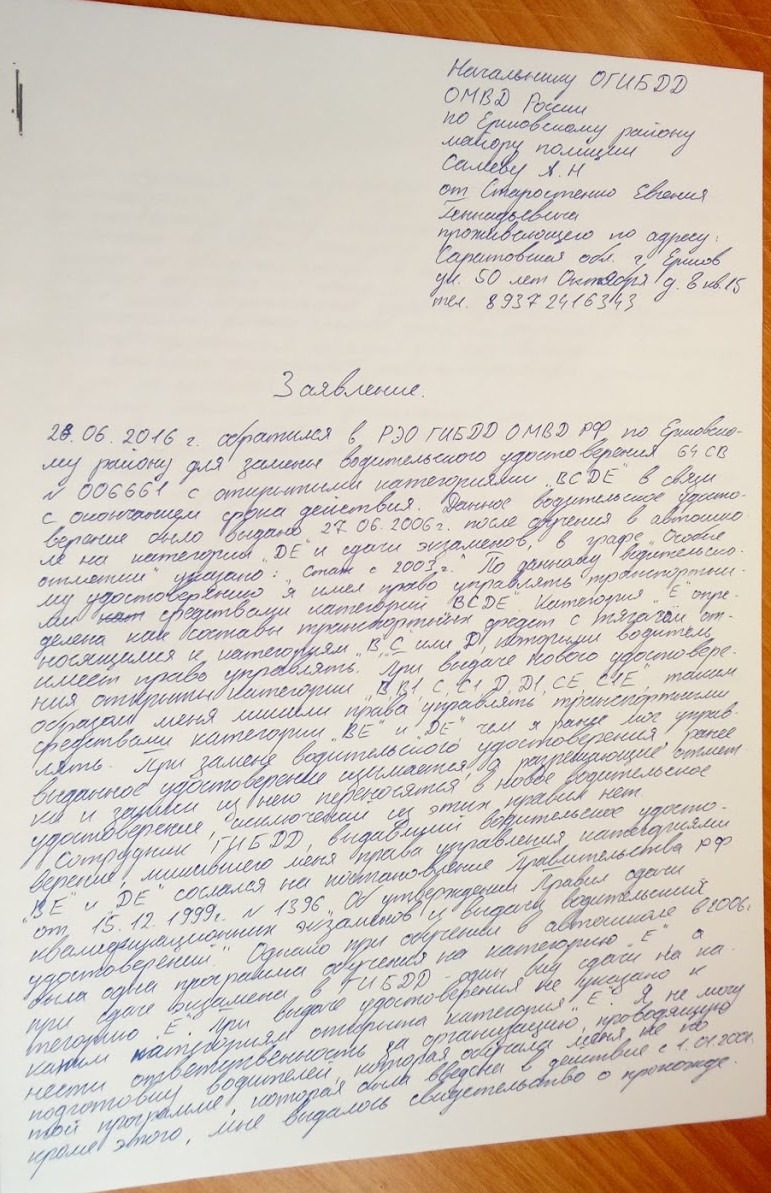 Начальнику ОГИБДД
ОМВД России
по Ершовскому району
майору полиции
Салееву А.Н
от Старостенко Евгения
Геннадьевича
проживающего по адресу:
Саратовская обл. г. Ершов
ул. 50 лет Октября д. 8 кв.15
тел. 89372416343
Заявление.
28.06.2016 г. обратился в РЭО ГИБДД ОМВД РФ по Ершовско-
му району для замены водительского удостоверения 64 СВ
№ 006661 с открытыми категориями „BCDE" в связи
с окончанием срока действия. Данное водительское удосто-
верение было выдано 27.06.2006г. после обучения в автошко-
ле на категории „DE" и сдачи экзаменов, в графе „Особые
отметки" указано: „Стаж с 2003г." По данному водительско-
му удостоверению я имел право управлять транспортны-
ми средствами категорий BCDE. Категория „E" опре-
делена как составы транспортных средст с тягачом от-
носящимся к категориям „B, C или D, которыми водитель
имеет право управлять. При выдаче нового удостовере-
ния открыты категории „B, B1, C, C1, D, D1, CE, C1E", таким
образом меня лишили права управлять транспортными
средствами категории „BE" и „DE" чем я ранее мог управ-
лять. При замене водительского удостоверения ранее
выданное удостоверение изымается, а разрешающие отмет-
ки и записи из него переносятся в новое водительское
удостоверение, исключений из этих правил нет
Сотрудник ГИБДД, выдавший водительское удосто-
верение, лишившего меня права управления категориями
„BE" и DE" сослался на постановление Правительства РФ
от 15.12.1999г. № 1396 „Об утверждении Правил сдачи
квалификационных экзаменов и выдачи водительский
удостоверений". Однако при обучении в автошколе в 2006г.
была одна программа обучения на категорию „E" а
при сдаче экзамена в ГИБДД - один вид сдачи на ка-
тегорию „E". При выдаче удостоверения не указано к
каким категориям открыта категория „E". Я не могу
нести ответственность за организацию, проводящую
подготовку водителей, которая обучала меня не по
той программе, которая была введена в действие с 1.01.2001.
кроме этого, мне выдалось свидетельство о прохожде-